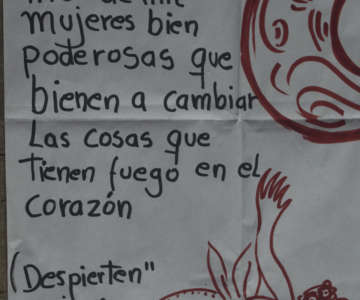 mujeres bien
poderosas que
bienen a cambiar
Las cosas que
tienen fuego en el
corazón
(Despierten"